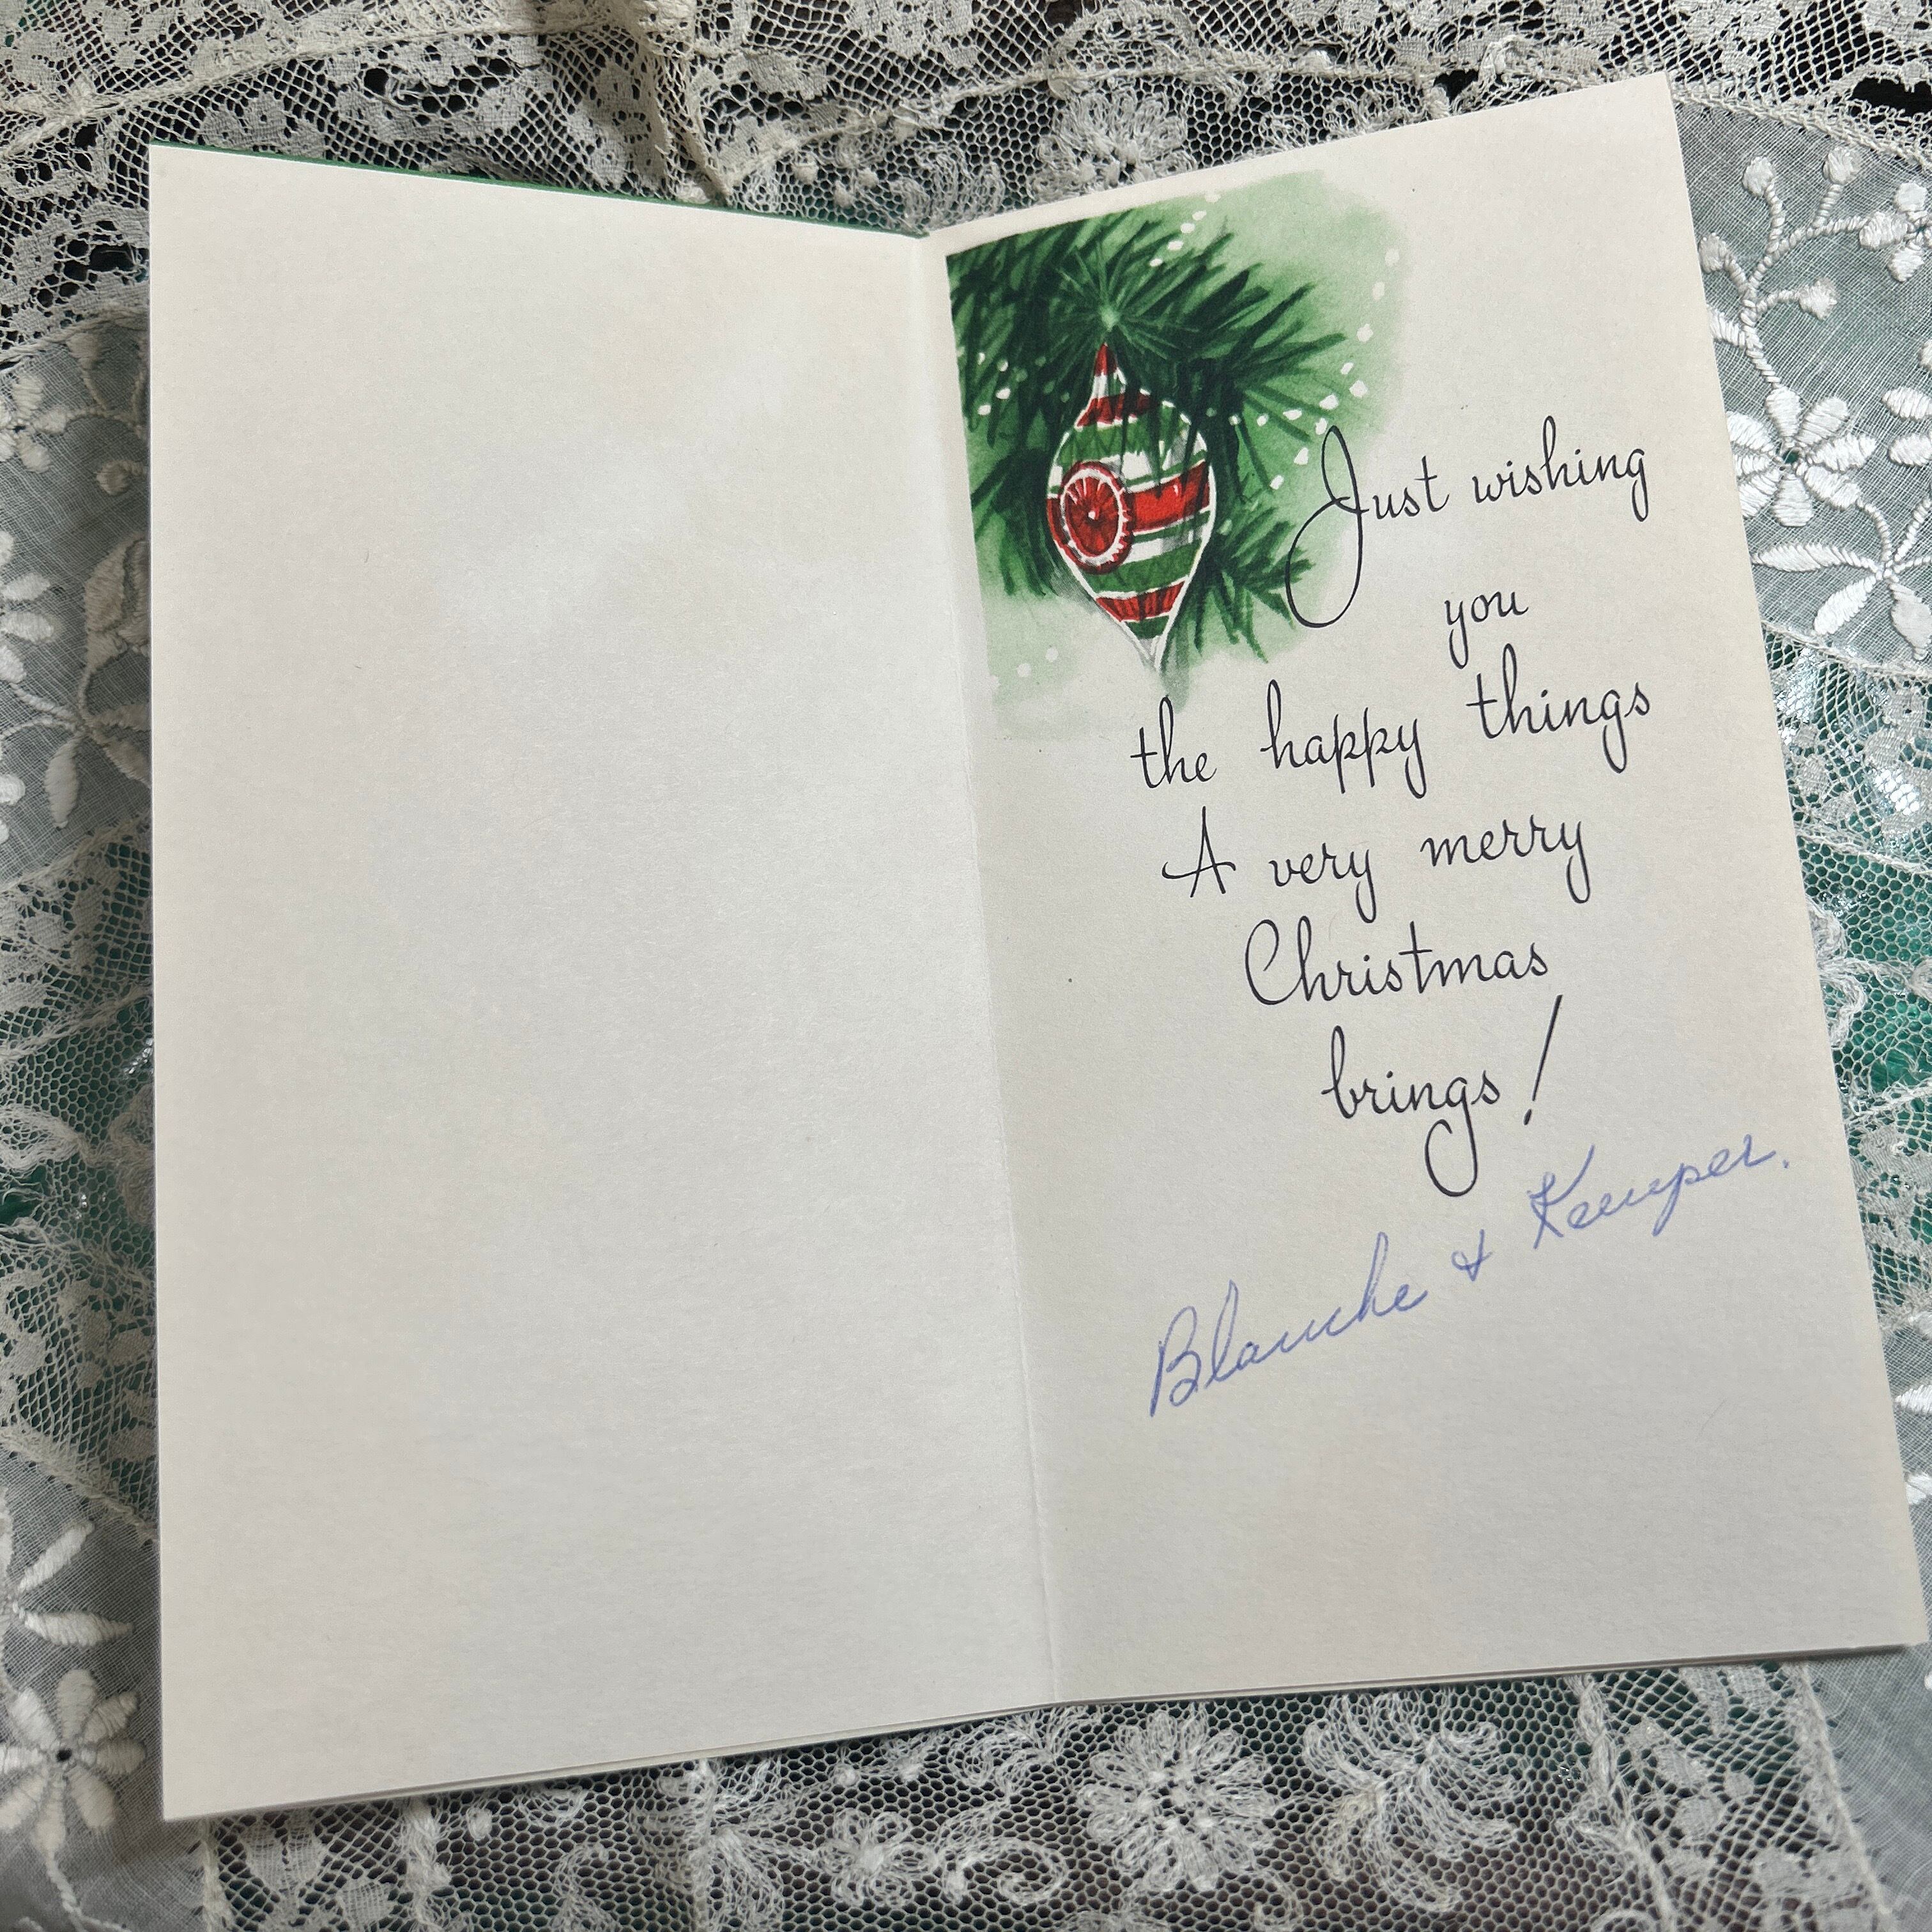 Just wishing
you
the happy things
A very merry
Christmas
brings!
Blanche & Kemper.